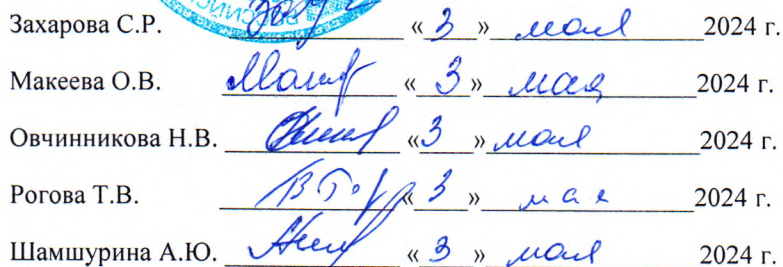 Захарова С.Р. «3» мая 2024 г.
Макеева О.В. «3» мая 2024 г.
Овчинникова Н.В. «3» мая 2024 г.
Рогова Т.В. «3» мая 2024 г.
Шамшурина А.Ю. «3» мая 2024 г.